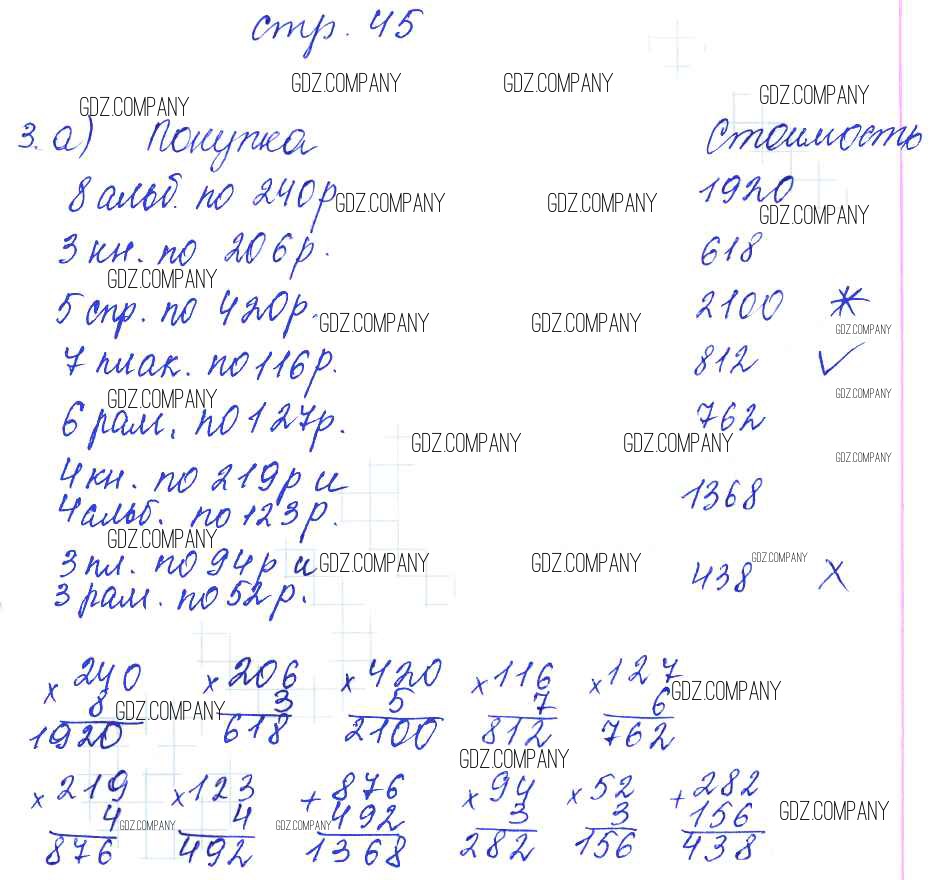 стр. 45
GDZ.COMPANY GDZ.COMPANY GDZ.COMPANY
GDZ.COMPANY
3. а) Покупка Стоимость
8 альб. по 240р GDZ.COMPANY GDZ.COMPANY 1920
GDZ.COMPANY
3 кн. по 206р. 618
GDZ.COMPANY
5 спр. по 420р. GDZ.COMPANY GDZ.COMPANY 2100 *
GDZ.COMPANY
7 плак. по 116р. 812 ✓
GDZ.COMPANY GDZ.COMPANY
6 рам. по 127р. 762
GDZ.COMPANY GDZ.COMPANY GDZ.COMPANY
4 кн. по 219р и
4 альб. по 123р. 1368
GDZ.COMPANY
3 пл. по 94р и GDZ.COMPANY GDZ.COMPANY GDZ.COMPANY
3 рам. по 52р. 438 X
x 240 x 206 x 420 x 116 x 127
8 3 5 7 6 GDZ.COMPANY
GDZ.COMPANY
1920 618 2100 812 762
GDZ.COMPANY
x 219 x 123 + 876 x 94 x 52 + 282
4 4 492 3 3 156 GDZ.COMPANY
GDZ.COMPANY GDZ.COMPANY
876 492 1368 282 156 438